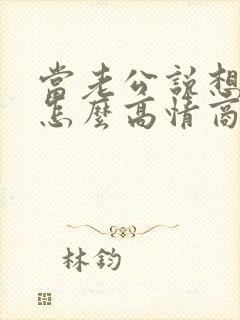 當老公說想
怎麼高情商
林鈞